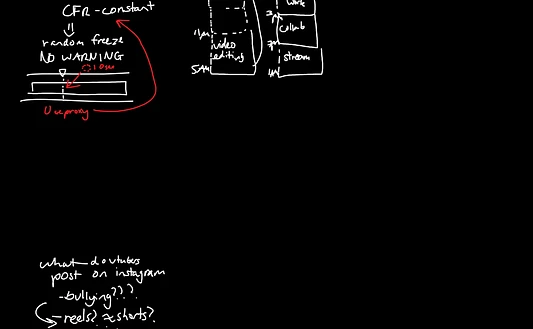 CFR - constant
random freeze
NO WARNING
Use proxy
work
collab
stream
video
editing
5AM
what do vtubers
post on instagram
- bullying???
- reels? ≈ shorts?